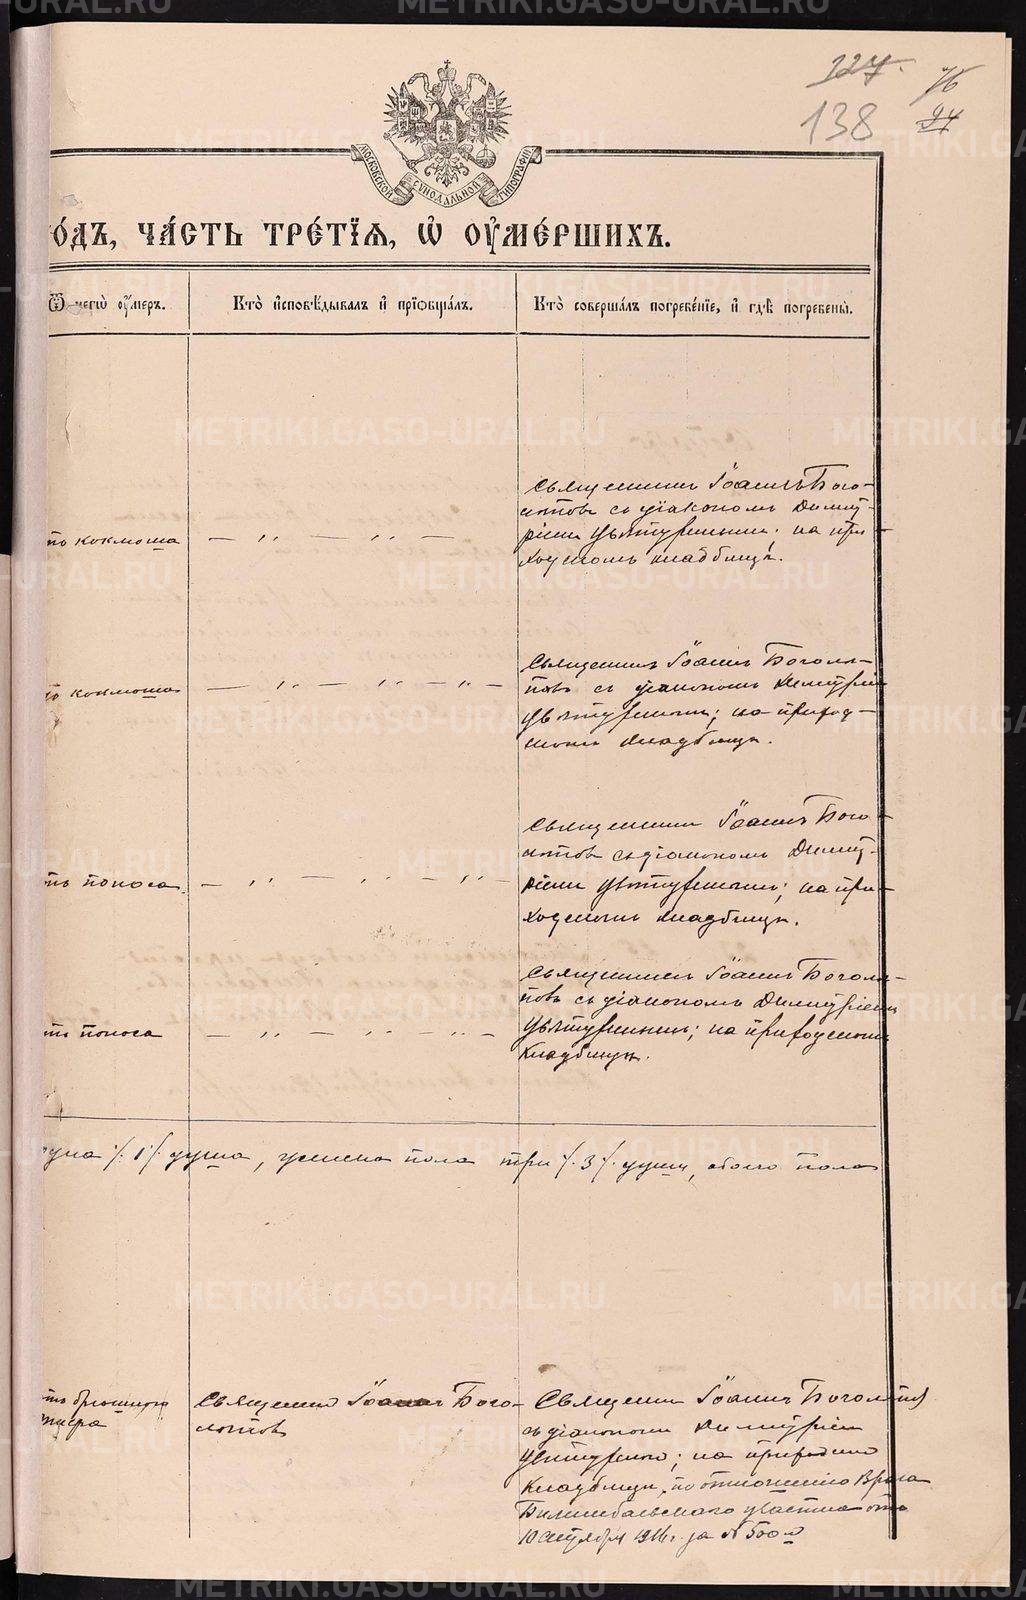 127.
76
138
94
МОСКОВСКОЙ СѴНОДАЛЬНОЙ ТИПОГРАФІИ
о́дъ, ча́сть тре́тїѧ, ѡ҆ оу҆ме́ршихъ.
Ѿ чегѡ̀ оу҆́меръ.
Кто̀ и҆сповѣ́дывалъ и҆ прїѡбща́лъ.
Кто̀ соверша́лъ погребе́нїе, и҆ гдѣ̀ погребены̀.
тъ коклюша
— ,, — ,, —
Священникъ Іоаннъ Бого-
лѣповъ съ діакономъ Димит-
ріемъ на при-
ходскомъ кладбищѣ.
тъ коклюша
— ,, — ,, — ,, —
Священникъ Іоаннъ Боголѣ-
повъ съ діакономъ Димитріемъ
на приход-
скомъ кладбищѣ.
тъ поноса
— ,, — ,, — ,, —
Священникъ Іоаннъ Бого-
лѣповъ съ діакономъ Димит-
ріемъ на при-
ходскомъ кладбищѣ.
тъ поноса
— ,, — ,, — ,, —
Священникъ Іоаннъ Боголѣ-
повъ съ діакономъ Димитріемъ
на приходскомъ
кладбищѣ.
·/.1·/. душа, женска пола три ·/.3·/. души, обоего пола
тъ брюшного
тифа
Священникъ Іоаннъ Бого-
лѣповъ
Священникъ Іоаннъ Боголѣповъ
съ діакономъ Димитріемъ
на приходском
кладбищѣ, по отношенію Врача
Билимбаевскаго участка отъ
10 сентября 1916 г. за №
METRIKI.GASO-URAL.RU